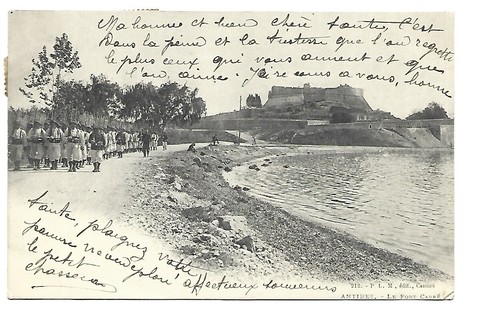 Ma bonne et bien chère tante, C'est
Dans la peine et la tristesse que l'on regrette
le plus ceux qui vous aiment et que
l'on aime. Je pense a vous, bonne
tante, plaignez votre
pauvre
le petit
chasseur
affectueux souvenirs
212. - P. L. M., édit., Cannes
ANTIBES. - LE FORT CARRÉ